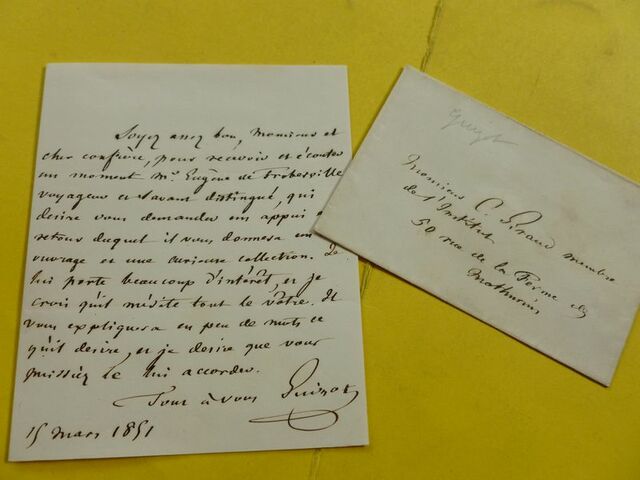 Soyez assez bon, Monsieur et
cher confrère, pour recevoir et écouter
un moment Mr. Eugène de Froberville
voyageur et savant distingué, qui
desire vous demander un appui
retour duquel il vous donnera un
ouvrage et une curieuse collection. Je
lui porte beaucoup d'intérêt, et je
crois qu'il mérite tout le vôtre. Il
vous expliquera en peu de mots ce
qu'il desire, et je desire que vous
puissiez le lui accorder.
Tout à vous Guizot
15 mars 1851
Guizot
Monsieur C. Giraud membre
de l'Institut
50 rue de la Ferme des
Mathurins